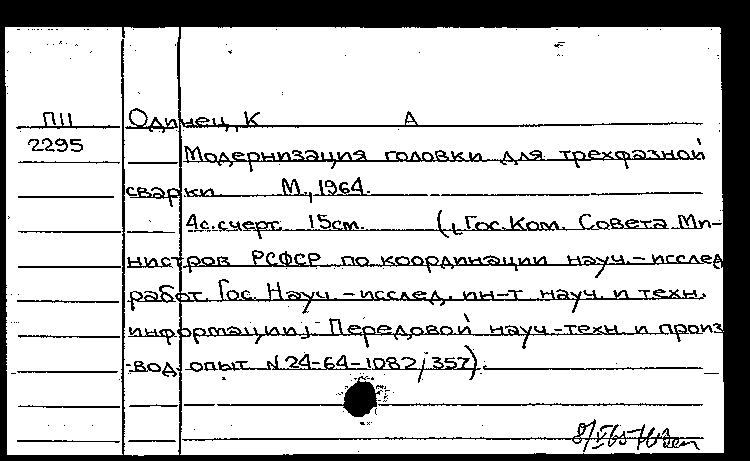 ПII Одинец, К А
2295 Модернизация головки для трехфазной
сварки М., 1964.
4с. с черт. 15см. (Гос. Ком. Совета Ми-
нистров РСФСР по координации науч.-исслед
работ. Гос. Науч.-исслед. ин-т науч. и техн.
информации). Передовой науч.-техн. и произ
-вод. опыт. N24-64-1082/357).